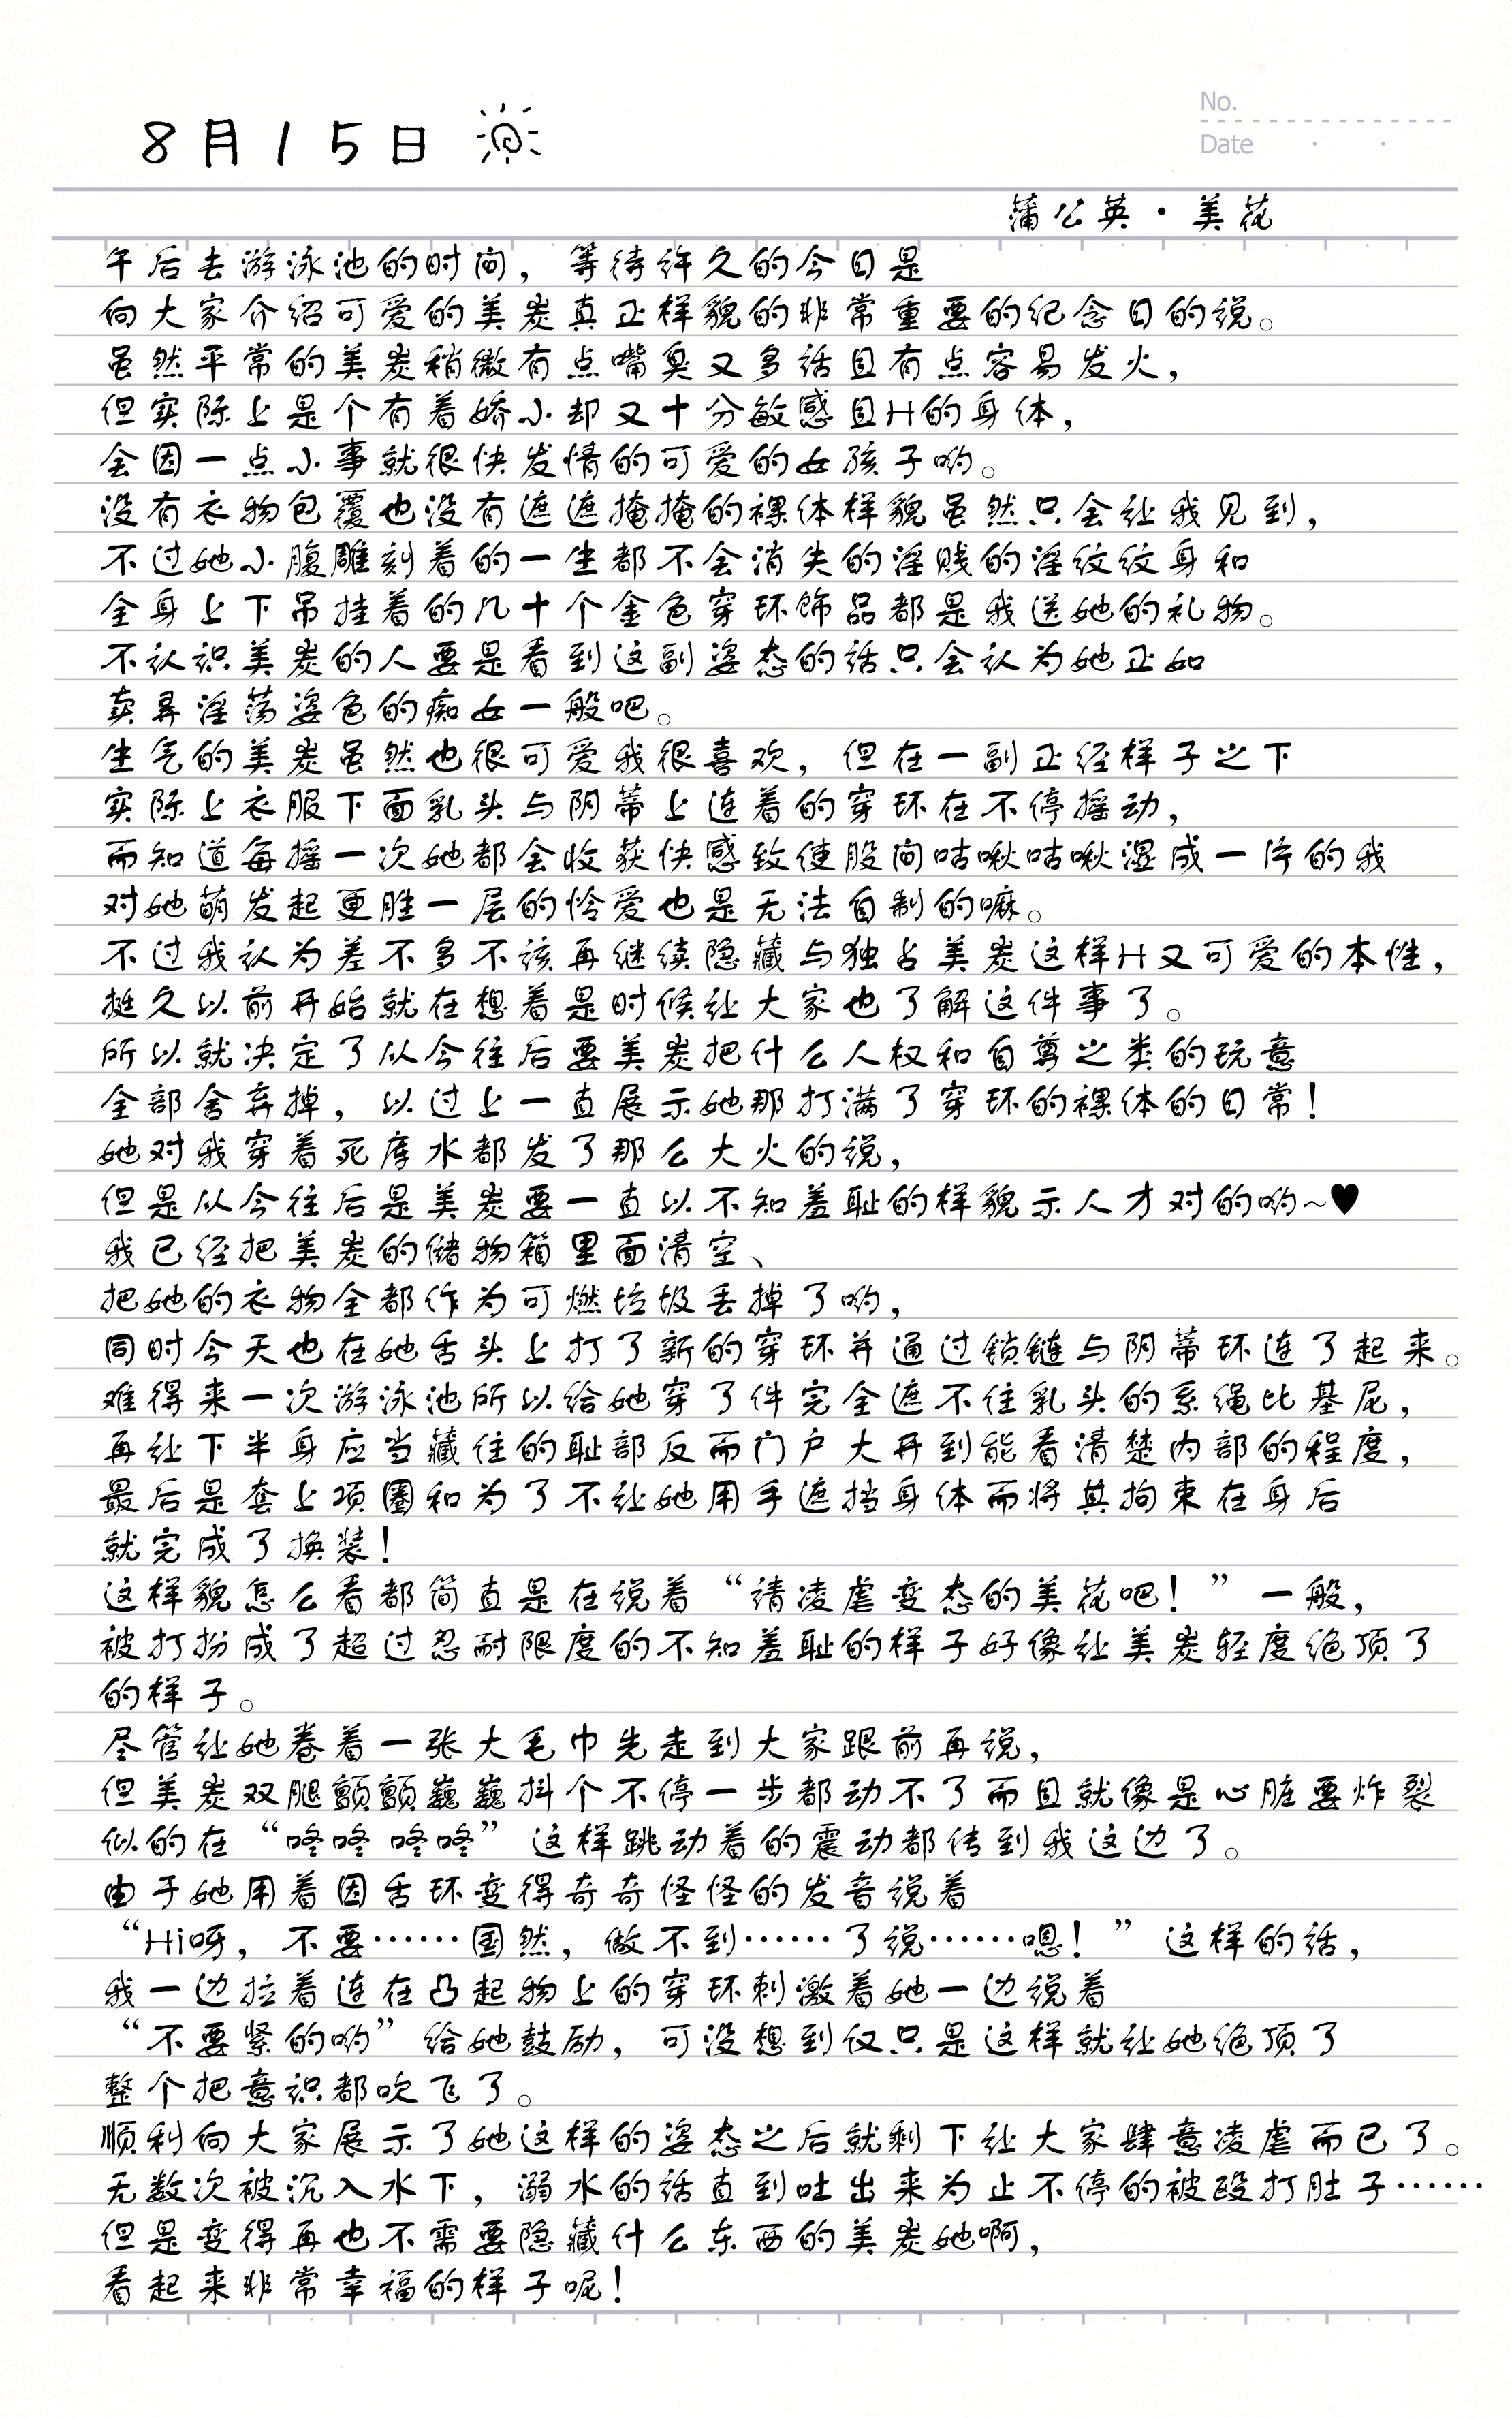 8月15日
No.
Date
蒲公英·美花
午后去游泳池的时间，等待许久的今日是
向大家介绍可爱的美炭真正样貌的非常重要的纪念日的说。
虽然平常的美炭稍微有点嘴臭又多话且有点容易发火，
但实际上是个有着娇小却又十分敏感且H的身体，
会因一点小事就很快发情的可爱的女孩子哟。
没有衣物包覆也没有遮遮掩掩的裸体样貌虽然只会让我见到，
不过她小腹雕刻着的一生都不会消失的淫贱的淫纹纹身和
全身上下吊挂着的几十个金色穿环饰品都是我送她的礼物。
不认识美炭的人要是看到这副姿态的话只会认为她正如
卖弄淫荡姿色的痴女一般吧。
生气的美炭虽然也很可爱我很喜欢，但在一副正经样子之下
实际上衣服下面乳头与阴蒂上连着的穿环在不停摇动，
而知道每摇一次她都会收获快感致使股间咕啾咕啾湿成一片的我
对她萌发起更胜一层的怜爱也是无法自制的嘛。
不过我认为差不多不该再继续隐藏与独占美炭这样H又可爱的本性，
挺久以前开始就在想着是时候让大家也了解这件事了。
所以就决定了从今往后要美炭把什么人权和自尊之类的玩意
全部舍弃掉，以过上一直展示她那打满了穿环的裸体的日常！
她对我穿着死库水都发了那么大火的说，
但是从今往后是美炭要一直以不知羞耻的样貌示人才对的哟~♥
我已经把美炭的储物箱里面清空、
把她的衣物全都作为可燃垃圾丢掉了哟，
同时今天也在她舌头上打了新的穿环并通过锁链与阴蒂环连了起来。
难得来一次游泳池所以给她穿了件完全遮不住乳头的系绳比基尼，
再让下半身应当藏住的耻部反而门户大开到能看清楚内部的程度，
最后是套上项圈和为了不让她用手遮挡身体而将其拘束在身后
就完成了换装！
这样貌怎么看都简直是在说着“请凌虐变态的美花吧！”一般，
被打扮成了超过忍耐限度的不知羞耻的样子好像让美炭轻度绝顶了
的样子。
尽管让她卷着一张大毛巾先走到大家跟前再说，
但美炭双腿颤颤巍巍抖个不停一步都动不了而且就像是心脏要炸裂
似的在“咚咚 咚咚”这样跳动着的震动都传到我这边了。
由于她用着因舌环变得奇奇怪怪的发音说着
“Hi呀，不要……国然，做不到……了说……嗯！”这样的话，
我一边拉着连在凸起物上的穿环刺激着她一边说着
“不要紧的哟”给她鼓励，可没想到仅只是这样就让她绝顶了
整个把意识都吹飞了。
顺利向大家展示了她这样的姿态之后就剩下让大家肆意凌虐而已了。
无数次被沉入水下，溺水的话直到吐出来为止不停的被殴打肚子……
但是变得再也不需要隐藏什么东西的美炭她啊，
看起来非常幸福的样子呢！